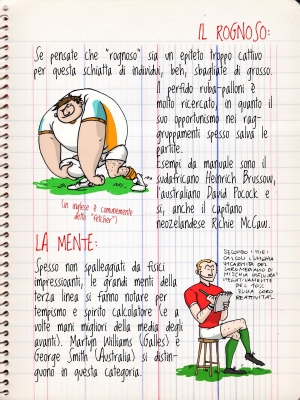 IL ROGNOSO:
Se pensate che "rognoso" sia un epiteto troppo cattivo
per questa schiatta di individui, beh, sbagliate di grosso.
Il perfido ruba-palloni è
molto ricercato, in quanto il
suo opportunismo nei rag-
gruppamenti spesso salva le
partite.
Esempi da manuale sono il
sudafricano Heinrich Brussow,
l'australiano David Pocock e
sì, anche il Capitano
neozelandese Richie McCaw.
(in inglese è comunemente
detto "fetcher")
LA MENTE:
Spesso non spalleggiati da fisici
impressionanti, le grandi menti della
terza linea si fanno notare per
tempismo e spirito calcolatore (e a
volte mani migliori della media degli
avanti). Martyn Williams (Galles) e
George Smith (Australia) si distin-
guono in questa categoria.
SECONDO I MIEI
CALCOLI L'UNGHIA
INCARNITA DEL
LORO MEDIANO DI
MISCHIA INFLUIRÀ
NEGATIVAMENTE
DEL 70%
SULLA LORO
REATTIVITÀ...